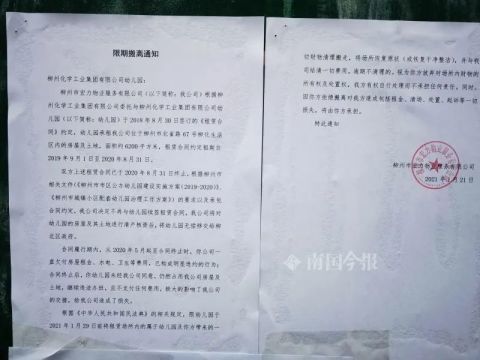 限期搬离通知
柳州化学工业集团有限公司幼儿园：
柳州市宏力物业服务有限公司（以下简称：我公司）根据柳
州化学工业集团有限公司委托与柳州化学工业集团有限公司
幼儿园（以下简称：幼儿园）于2018年8月30日签订的《租赁合
同》约定，幼儿园承租我公司位于柳州市北雀路67号柳化生活
区内的房屋及土地，面积约6200平方米，租赁合同约定租期自
2019年9月1日至2020年8月31日。
双方上述租赁合同已于2020年8月31日终止，根据柳州市
相关文件《柳州市市区公办幼儿园建设实施方案(2019-2020)》、
《柳州市城镇小区配套幼儿园治理工作方案》）的要求以及承包
合同约定，我公司决定不再与幼儿园续签租赁合同，我公司将对
幼儿园的房屋及其土地进行清产核资后，将幼儿园无偿移交给柳
北区政府。
合同履行期内，从2020年5月起至合同终止时，你公司一
直欠付房屋租金、水电、卫生等费用，已构成明显违约行为；
合同终止后，你幼儿园未经我公司同意，仍然占用我公司房屋及
土地，继续违法办班，且不支付任何费用，极大的影响了我公司
的交接，给我公司造成了损失。
根据《中华人民共和国民法典》的相关规定，限幼儿园于
2021年1月29日前将租赁场所内的属于幼儿园及你方带来的一
切财物清理搬走，将场所恢复原状（或恢复干净整洁），并与我
司结清一切费用。逾期不清理的，视为你方放弃对场所内财物的
所有权及处置权，我方有权自行处理而不承担任何责任。同时，
因你方拒绝搬离对我方造成包括租金、清场、处置、起诉等一切
损失，将由你方承担。
特此通知
柳州市宏力物业服务有限公司
2021年1月21日
南国今报